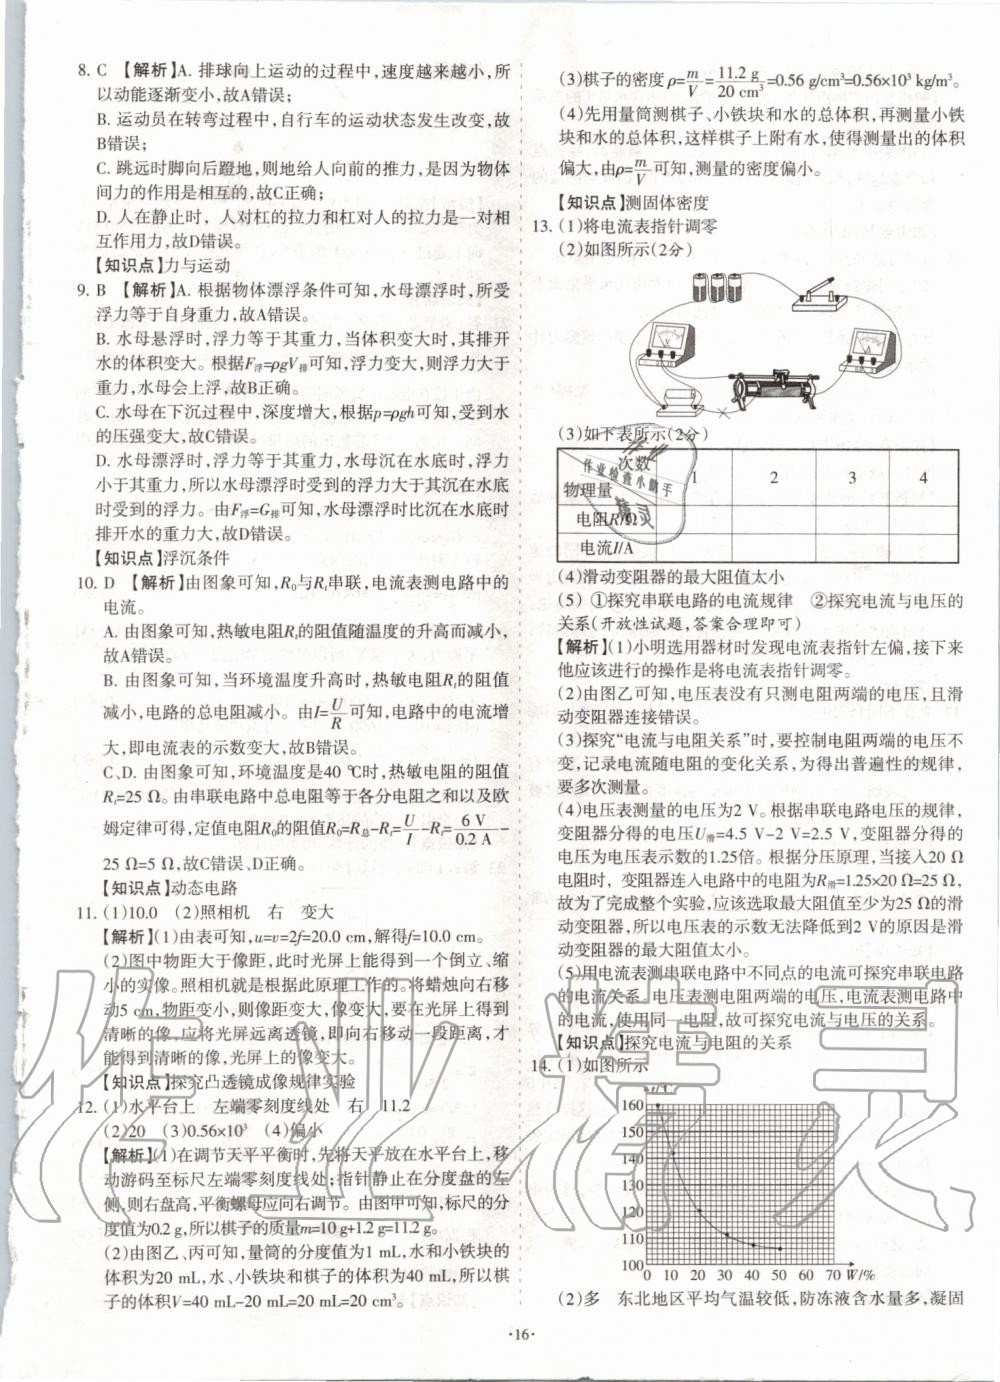 8. C 【解析】A. 排球向上运动的过程中,速度越来越小,所
以动能逐渐变小,故A错误;
B. 运动员在转弯过程中,自行车的运动状态发生改变,故
B错误;
C. 跳远时脚向后蹬地,则地给人向前的推力,是因为物体
间力的作用是相互的,故C正确;
D. 人在静止时, 人对杠的拉力和杠对人的拉力是一对相
互作用力,故D错误。
【知识点】力与运动
9. B 【解析】A. 根据物体漂浮条件可知,水母漂浮时,所受
浮力等于自身重力,故A错误。
B. 水母悬浮时,浮力等于其重力,当体积变大时,其排开
水的体积变大。根据F浮=ρgV排可知,浮力变大,则浮力大于
重力,水母会上浮,故B正确。
C. 水母在下沉过程中,深度增大,根据p=ρgh可知,受到水
的压强变大,故C错误。
D. 水母漂浮时,浮力等于其重力,水母沉在水底时,浮力
小于其重力,所以水母漂浮时受到的浮力大于其沉在水底
时受到的浮力。由F浮=G排可知,水母漂浮时比沉在水底时
排开水的重力大,故D错误。
【知识点】浮沉条件
10. D 【解析】由图象可知,R0与Rt串联,电流表测电路中的
电流。
A. 由图象可知,热敏电阻Rt的阻值随温度的升高而减小,
故A错误。
B. 由图象可知,当环境温度升高时,热敏电阻Rt的阻值
减小,电路的总电阻减小。由I=U/R可知,电路中的电流增
大,即电流表的示数变大,故B错误。
C、D. 由图象可知,环境温度是40 ℃时,热敏电阻的阻值
Rt=25 Ω。由串联电路中总电阻等于各分电阻之和以及欧
姆定律可得,定值电阻R0的阻值R0=R总-Rt=U/I-Rt=6 V/0.2 A-
25 Ω=5 Ω,故C错误、D正确。
【知识点】动态电路
11. (1)10.0 (2)照相机 右 变大
【解析】(1)由表可知,u=v=2f=20.0 cm,解得f=10.0 cm。
(2)图中物距大于像距,此时光屏上能得到一个倒立、缩
小的实像。照相机就是根据此原理工作的。将蜡烛向右移
动5 cm,物距变小,则像距变大,像变大,要在光屏上得到
清晰的像,应将光屏远离透镜,即向右移动一段距离,才
能得到清晰的像,光屏上的像变大。
【知识点】探究凸透镜成像规律实验
12. (1)水平台上 左端零刻度线处 右 11.2
(2)20 (3)0.56×10³ (4)偏小
【解析】(1)在调节天平平衡时,先将天平放在水平台上,移
动游码至标尺左端零刻度线处;指针静止在分度盘的左
侧,则右盘高,平衡螺母应向右调节。由图甲可知,标尺的分
度值为0.2 g,所以棋子的质量m=10 g+1.2 g=11.2 g。
(2)由图乙、丙可知,量筒的分度值为1 mL,水和小铁块的
体积为20 mL,水、小铁块和棋子的体积为40 mL,所以棋
子的体积V=40 mL-20 mL=20 mL=20 cm³。
(3)棋子的密度ρ=m/V=11.2 g/20 cm³=0.56 g/cm³=0.56×10³ kg/m³。
(4)先用量筒测量棋子、小铁块和水的总体积,再测量小铁
块和水的总体积,这样棋子上附有水,使得测量出的体积
偏大,由ρ=m/V可知,测量的密度偏小。
【知识点】测固体密度
13. (1)将电流表指针调零
(2)如图所示(2分)
(3)如下表所示(2分)
次数 1 2 3 4
物理量
电阻R/Ω
电流I/A
作业检查小助手
精灵
(4)滑动变阻器的最大阻值太小
(5) ①探究串联电路的电流规律 ②探究电流与电压的
关系(开放性试题,答案合理即可)
【解析】(1)小明选用器材时发现电流表指针左偏,接下来
他应该进行的操作是将电流表指针调零。
(2)由图乙可知,电压表没有只测电阻两端的电压,且滑
动变阻器连接错误。
(3)探究“电流与电阻关系”时,要控制电阻两端的电压不
变,记录电流随电阻的变化关系,为得出普遍性的规律,
要多次测量。
(4)电压表测量的电压为2 V。根据串联电路电压的规律,
变阻器分得的电压U滑=4.5 V-2 V=2.5 V,变阻器分得的
电压为电压表示数的1.25倍。根据分压原理,当接入20 Ω
电阻时, 变阻器连入电路中的电阻为R滑=1.25×20 Ω=25 Ω,
故为了完成整个实验,应该选取最大阻值至少为25 Ω的滑
动变阻器,所以电压表的示数无法降低到2 V的原因是滑
动变阻器的最大阻值太小。
(5)用电流表测串联电路中不同点的电流可探究串联电路
的电流关系,电压表测电阻两端的电压,电流表测电路中
的电流,使用同一电阻,故可探究电流与电压的关系。
【知识点】探究电流与电阻的关系
14. (1)如图所示
t/℃
160
150
140
130
120
110
100
0 10 20 30 40 50 60 70 W/%
(2)多 东北地区平均气温较低,防冻液含水量多,凝固
·16·
作业精灵